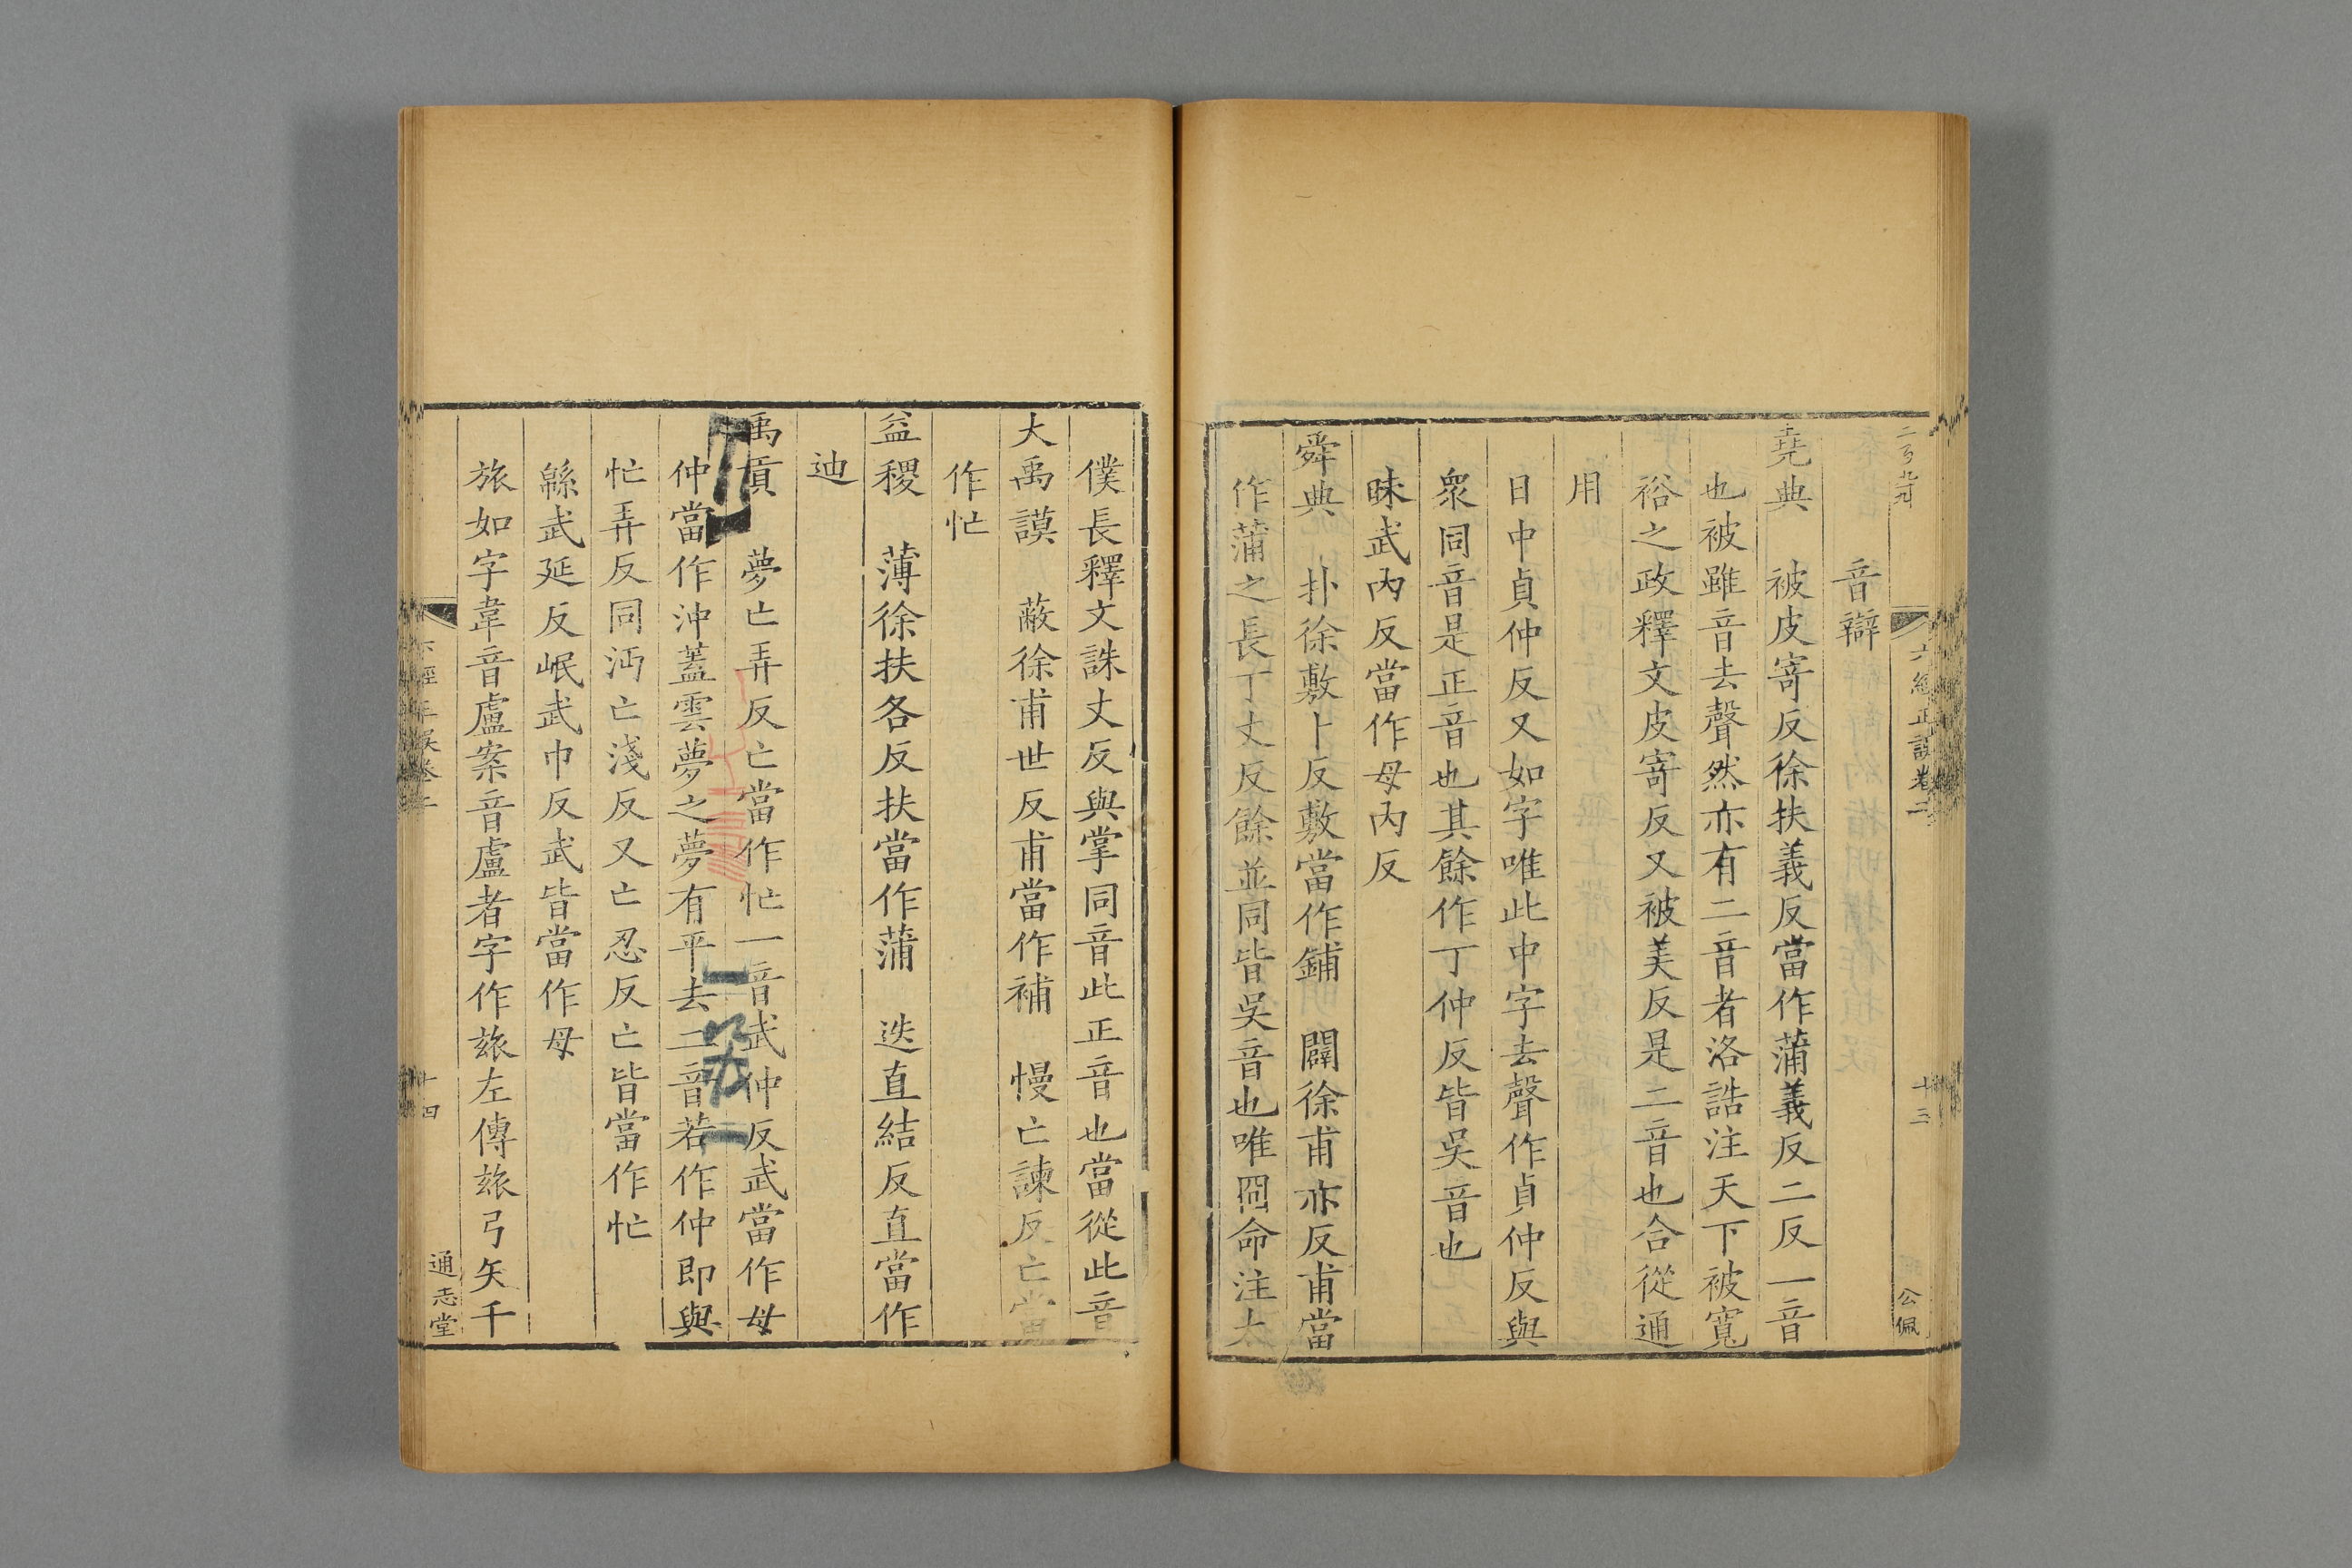 六經正誤卷二
十三
公佩
音辯
堯典　被皮寄反徐扶義反當作蒲義反二反一音
也被雖音去聲然亦有二音者洛誥注天下被寬
裕之政釋文皮寄反又被美反是二音也合從通
用
日中貞仲反又如字唯此中字去聲作貞仲反與
衆同音是正音也其餘作丁仲反皆吳音也
昧武內反當作母內反
舜典　扑徐敷卜反敷當作鋪　闢徐甫亦反甫當
作蒲之長丁丈反餘並同皆吳音也唯冏命注太
僕長釋文誅丈反與掌同音此正音也當從此音
大禹謨　蔽徐甫世反甫當作補　慢亡諫反亡當
作忙
益稷　薄徐扶各反扶當作蒲　迭直結反直當作
迪
禹貢　夢亡弄反亡當作忙一音武仲反武當作母
仲當作沖蓋雲夢之夢有平去二音若作仲即與
忙弄反同沔亡淺反又亡忍反亡皆當作忙
緜武延反岷武巾反武皆當作母
旅如字韋音盧案音盧者字作玈左傳玈弓矢千
六經正誤卷二
十四
通志堂